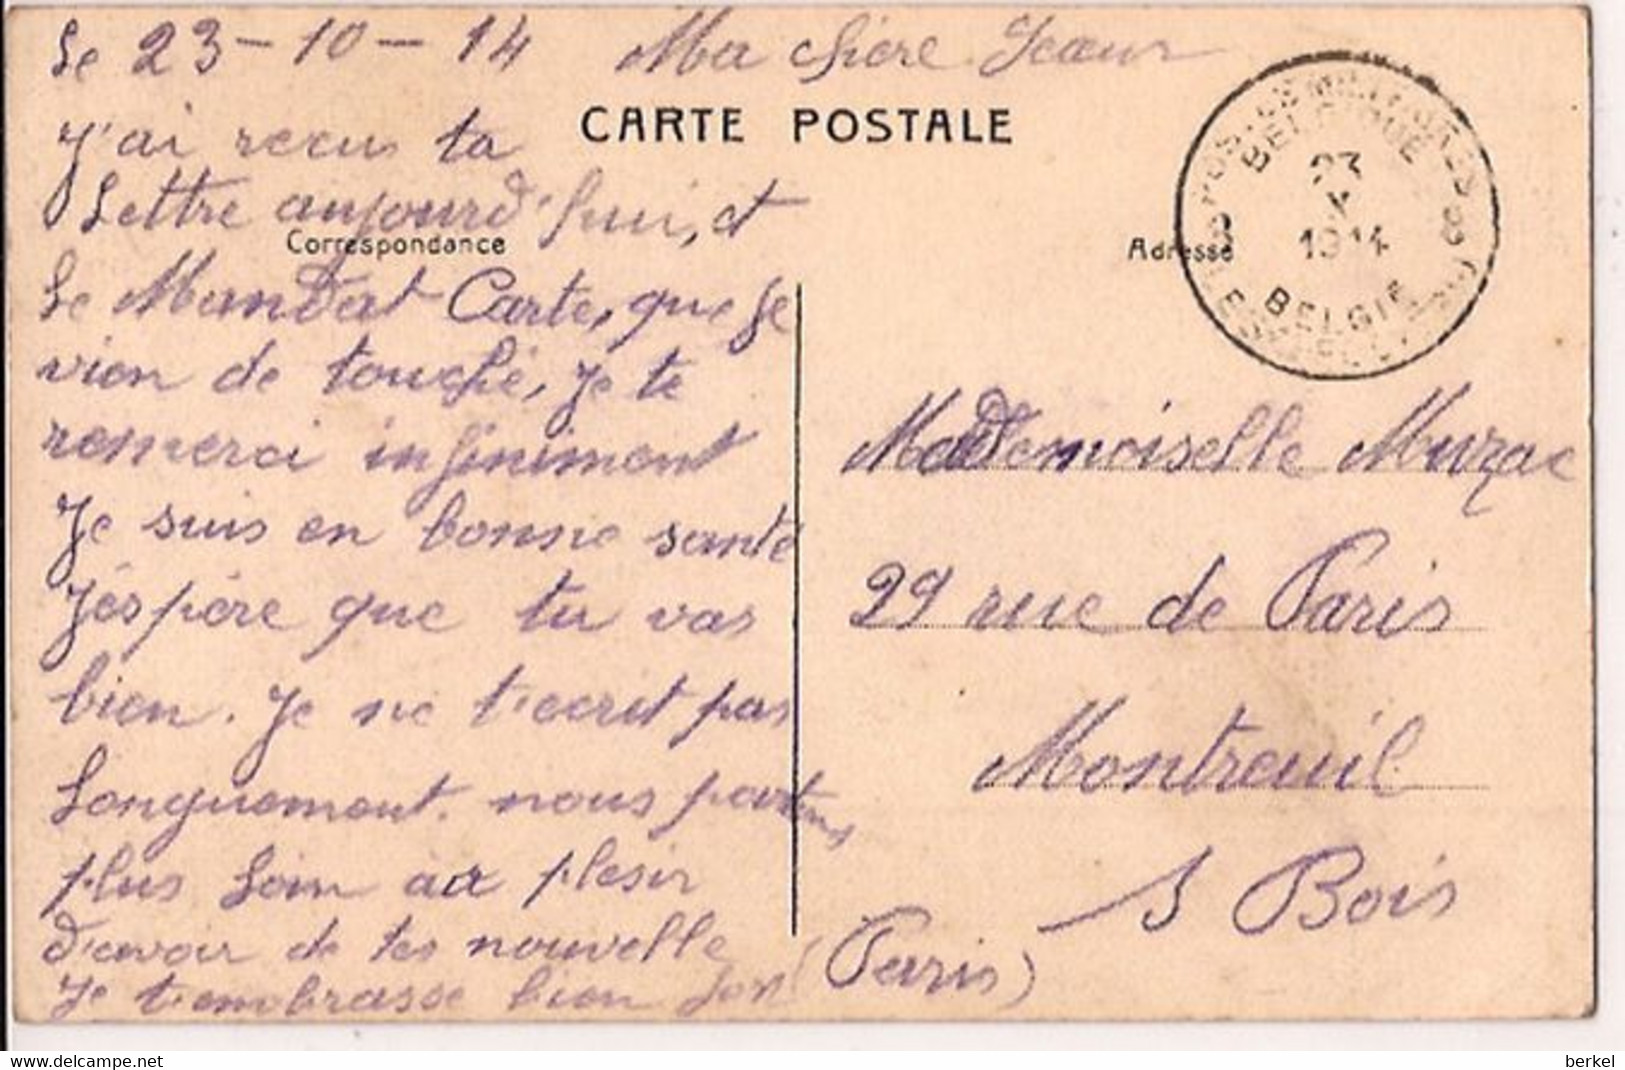 Le 23-10-14 Ma chère Sœur
CARTE POSTALE
J'ai recus ta
Lettre aujourd'hui, et
Correspondance
Le Mandat Carte, que je
vien de touché, je te
remerci infiniment
Je suis en bonne santé
J'éspère que tu vas
bien. Je ne t'ecrit pas
Longuement. nous partons
plus Loin au plesir
d'avoir de tes nouvelle
Je t'embrasse bien
POSTES MILITAIRES
BELGIQUE
23
X
1914
BELGIË
Adresse
Mademoiselle Muzac
29 rue de Paris
Montreuil
S Bois
(Paris)
berkel